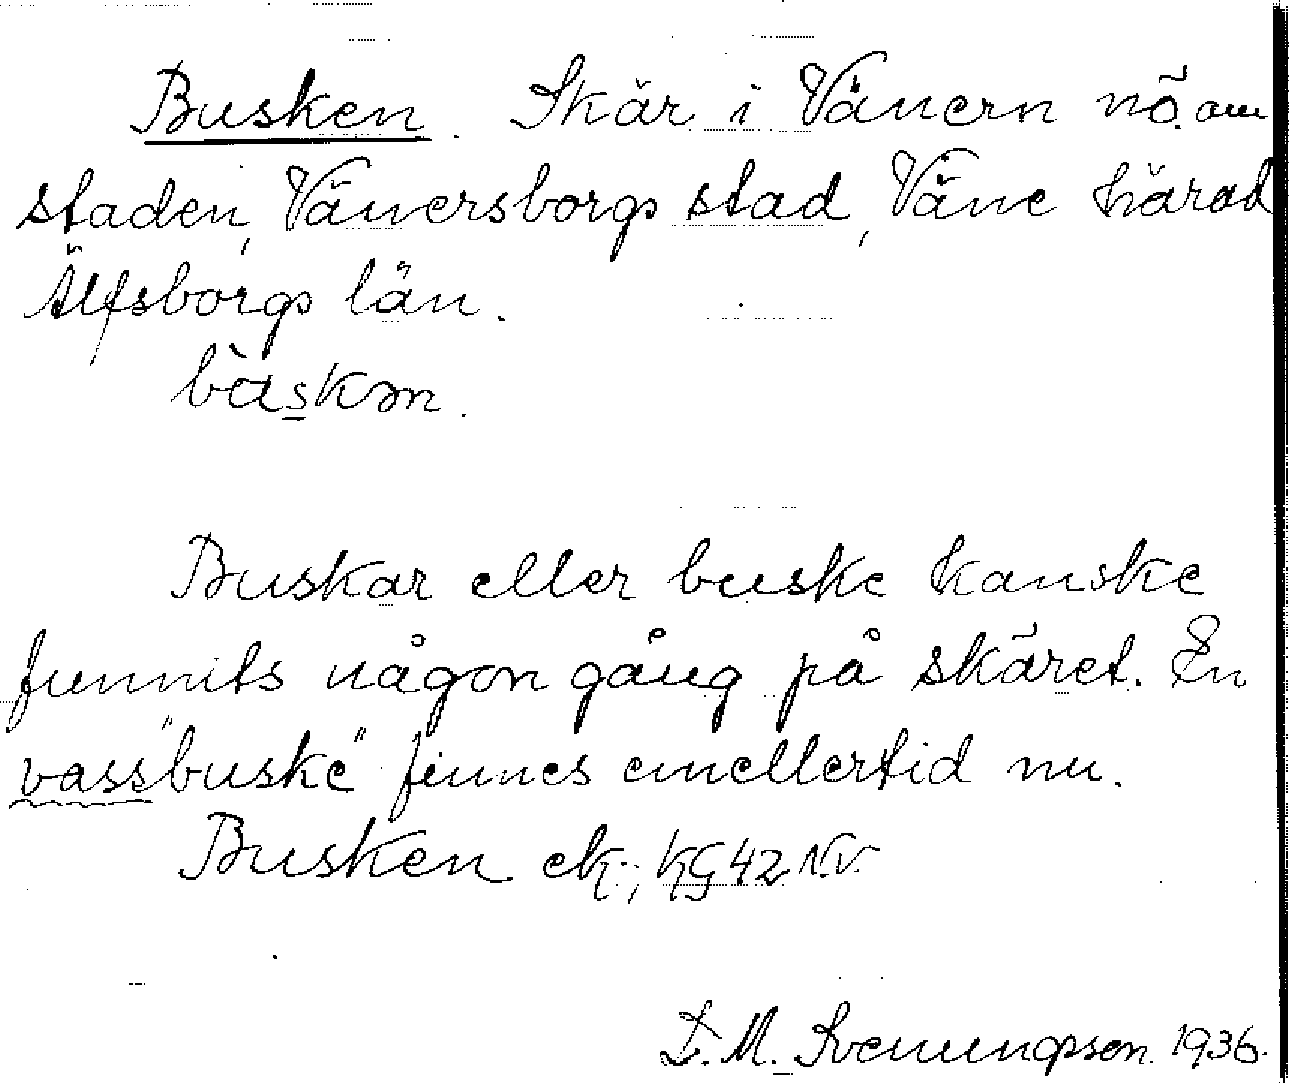 Busken. Skär i Vänern nö. om
staden, Vänersborgs stad, Väne härad
Älfsborgs län.
bàskən.
Buskar eller buske kanske
funnits någon gång på skäret. En
vass"buske" finnes emellertid nu.
Busken ek.; KG 42 NV.
D. M. Svenungsson. 1936.